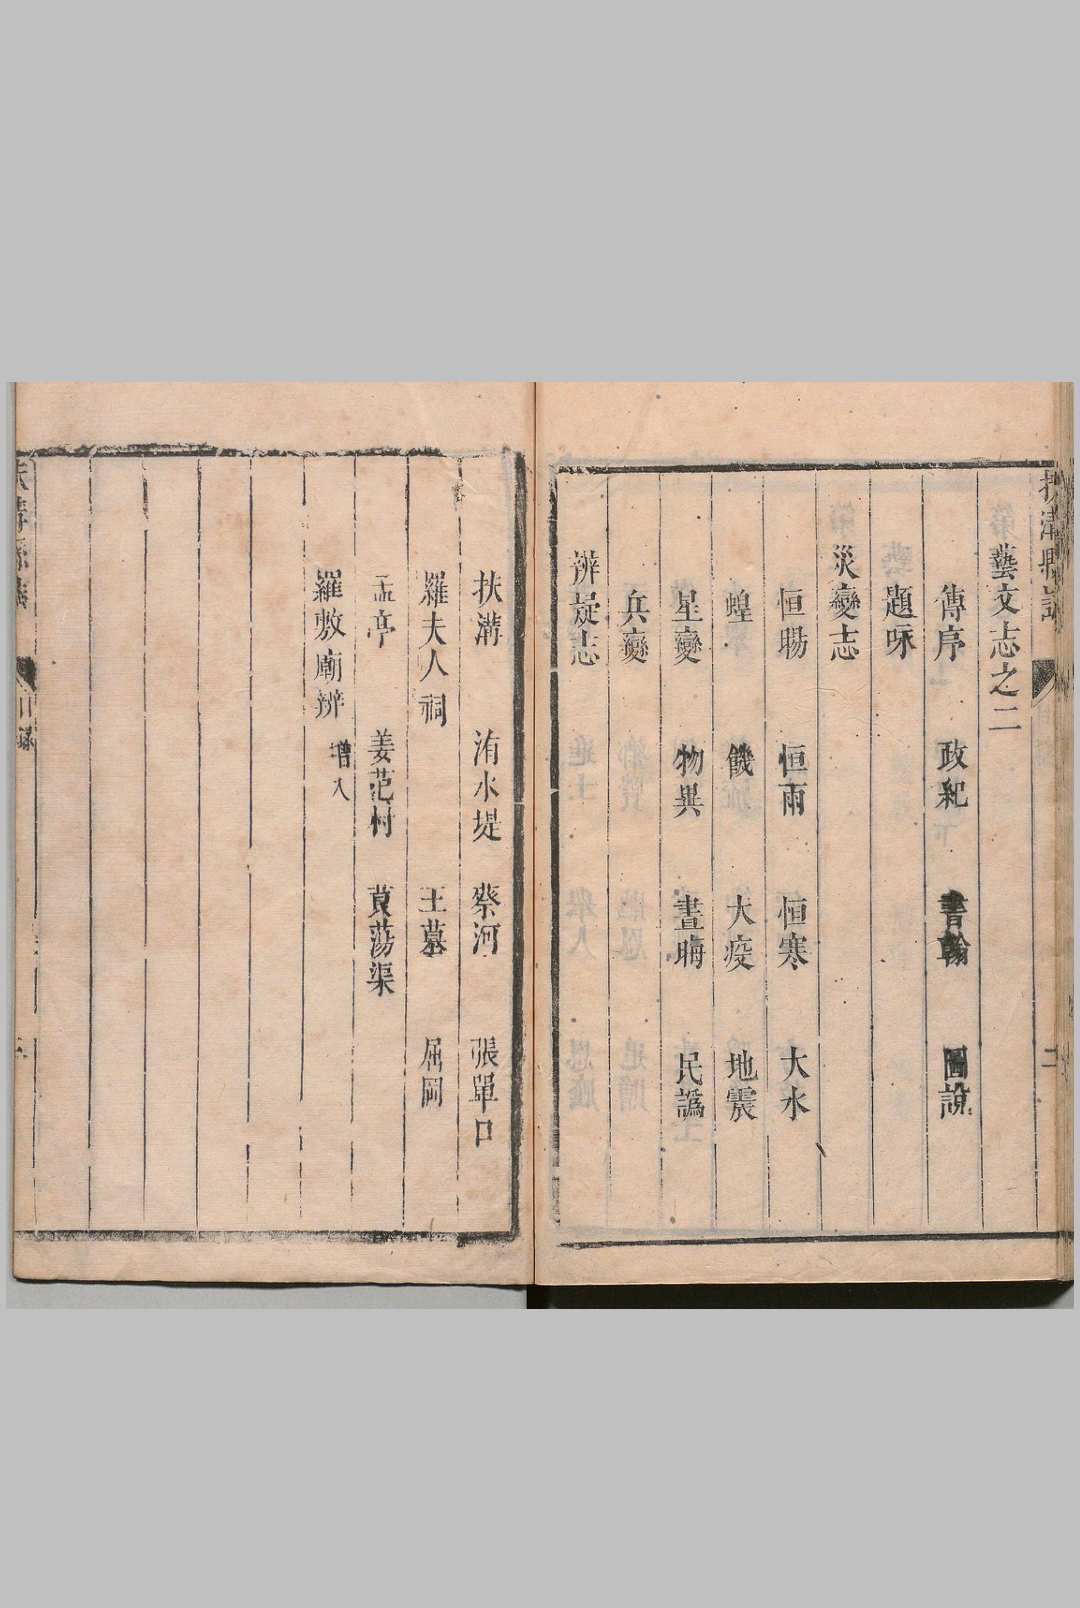 扶溝縣誌
二
藝文志之二
傳序 政紀 書翰 圖說
題咏
災變志
恒暘 恒雨 恒寒 大水
蝗 饑 大疫 地震
星變 物異 晝晦 民譌
兵變
辨疑志
扶溝 洧水堤 蔡河 張單口
羅夫人祠 王墓 屈岡
盂亭 姜范村 莨蕩渠
羅敷廟辨 增入
目錄